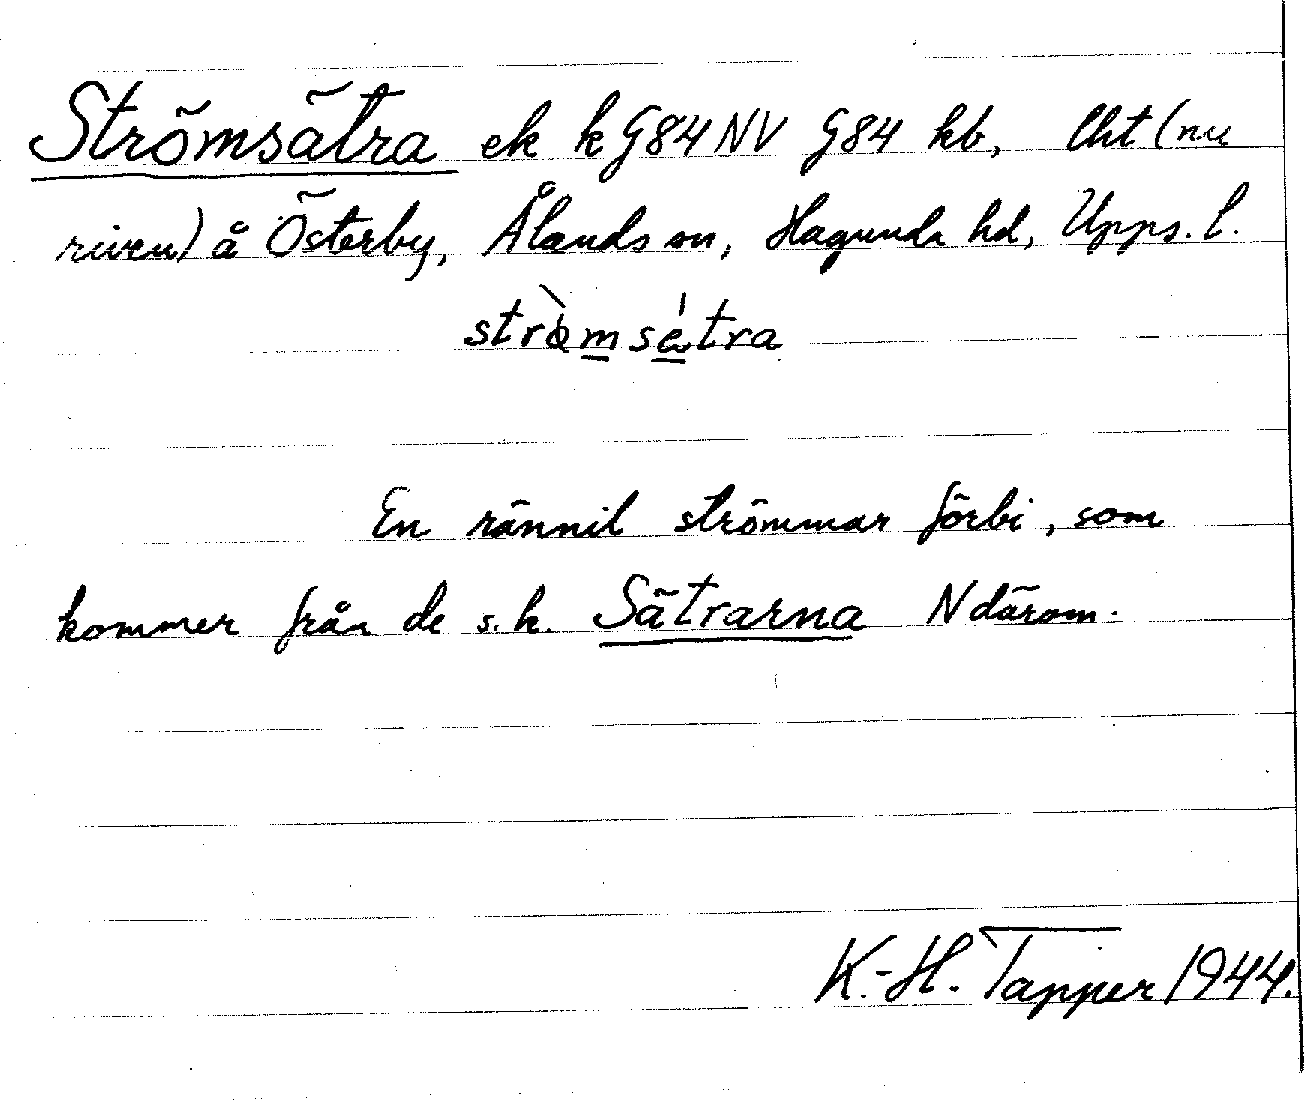 Strömsätra ek k G84NV G84 kb, lht (nu
riven) å Österby, Ålands sn, Hagunda hd, Upps. l.
strömsetra
En rännil strömmar förbi, som
kommer från de s.k. Sätrarna N därom.
K.-H. Tapper 1944.